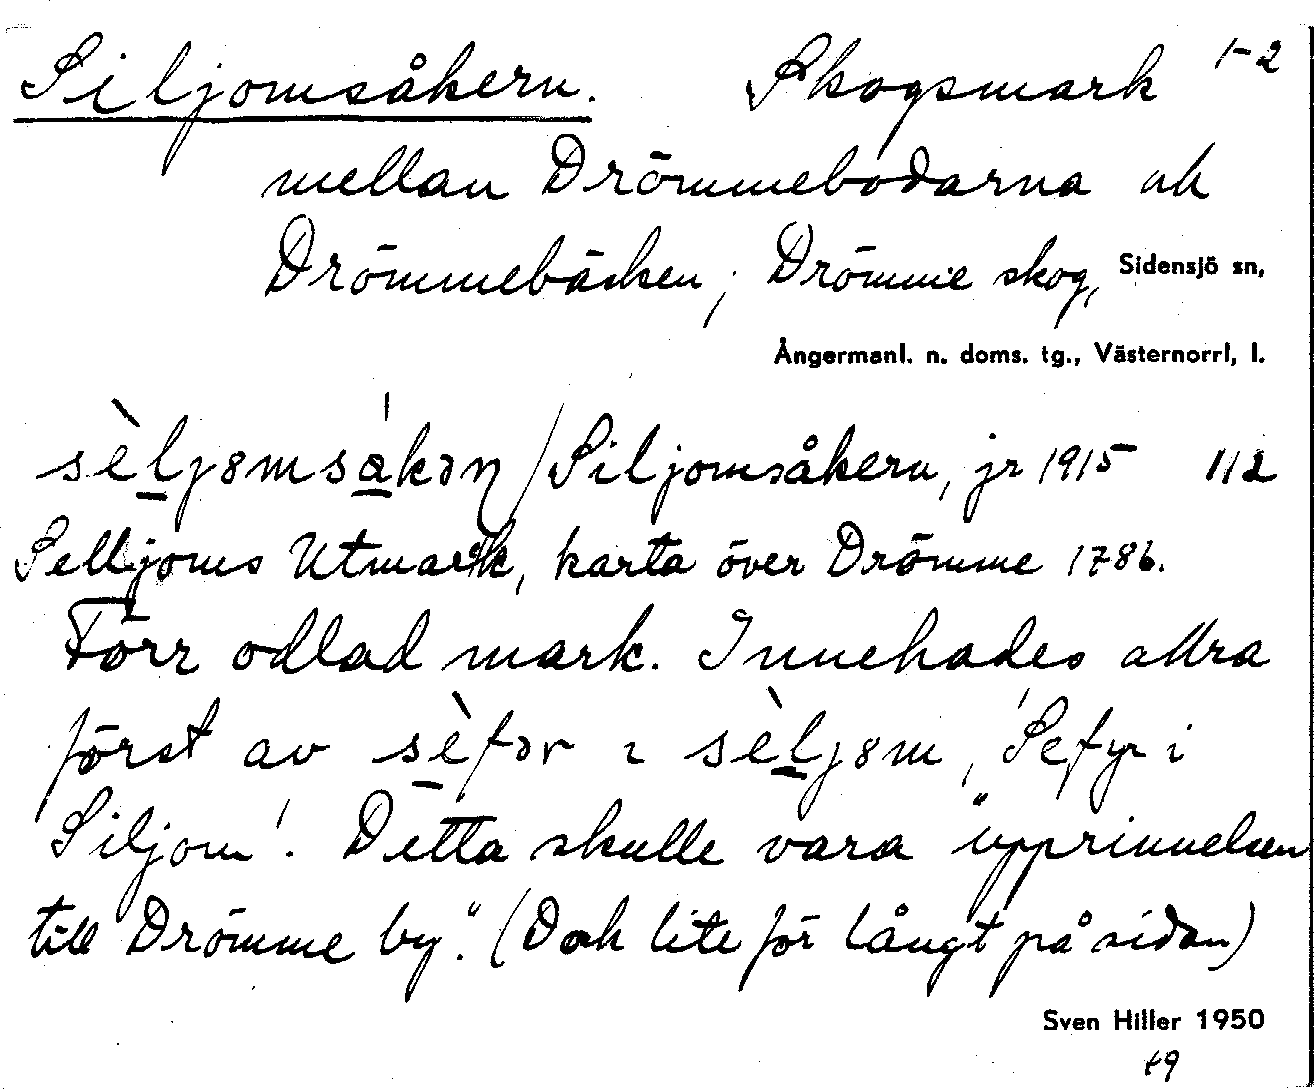 Siljomsåkern. Skogsmark 1-2
mellan Drömmebodarna och
Drömmebäcken; Drömme skog, Sidensjö sn,
Ångermanl. n. doms. tg., Västernorrl, l.
sèl̠jɵmsa̠kəɳ / Siljomsåkern, jr 1915 112
Selljoms Utmark, karta över Drömme 1786.
Förr odlad mark. Innehades allra
först av sèfər ı sèl̠jɵm, 'Sefyr i
Siljom'. Detta skulle vara "upprinnelsen
till Drömme by." (Dock lite för långt på sidan)
Sven Hiller 1950